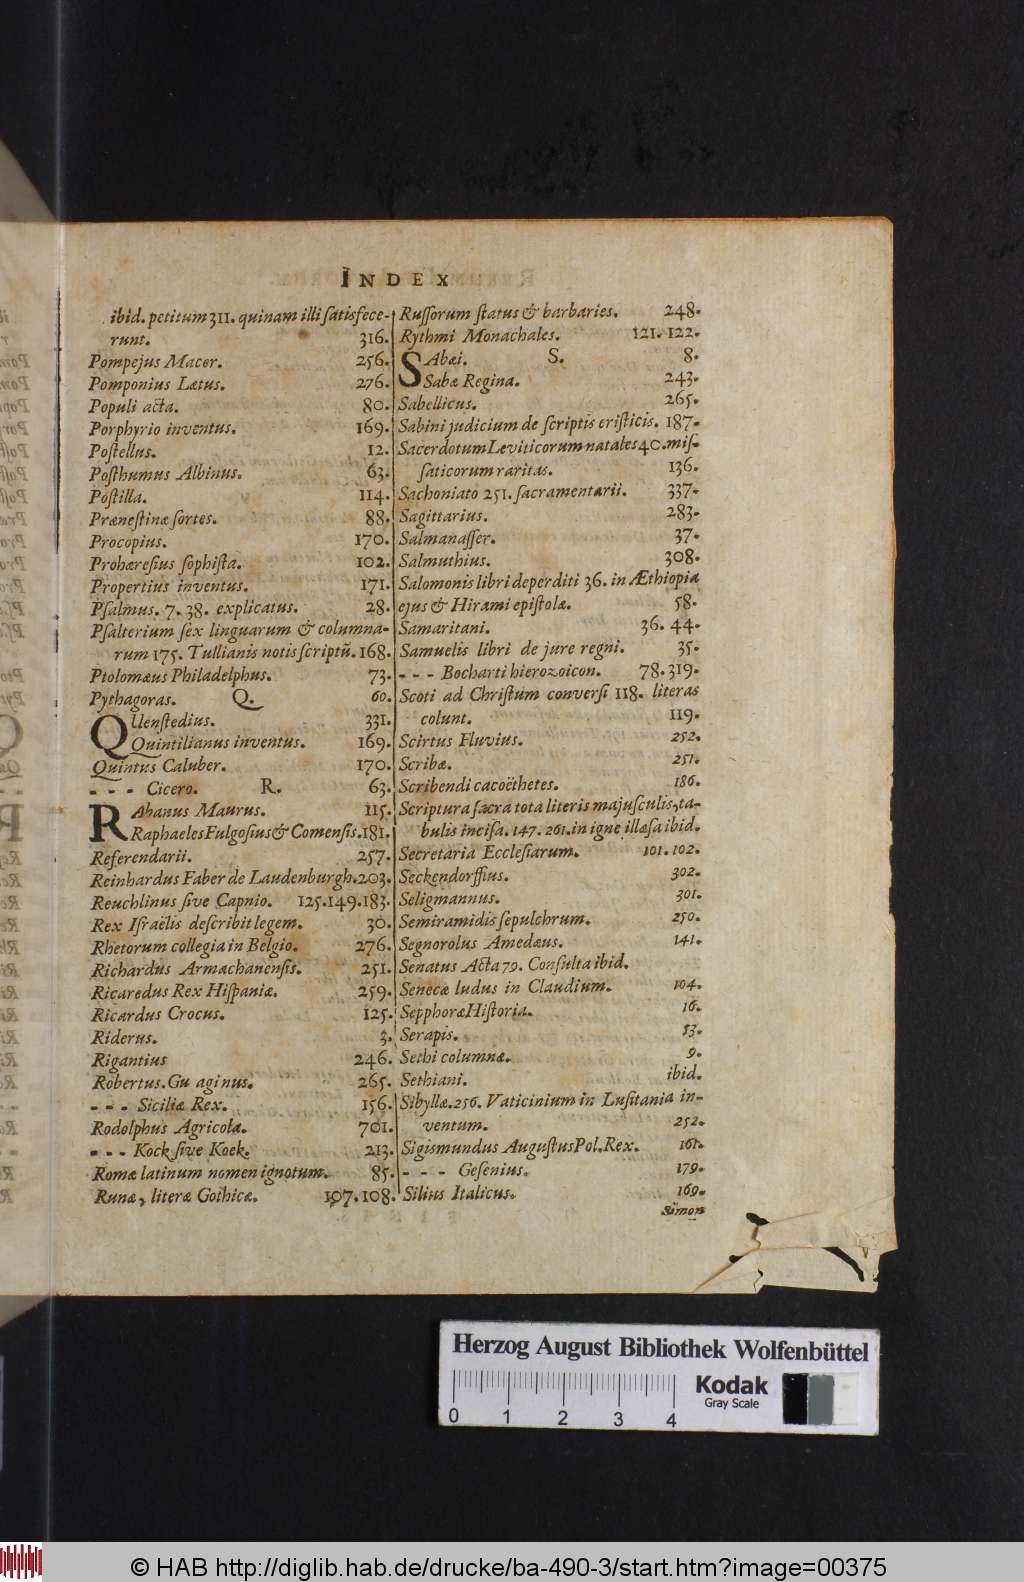 INDEX
ibid. petitum 311. quinam illi satisfece-
runt. 316.
Pompejus Macer. 256.
Pomponius Lætus. 276.
Populi acta. 80.
Porphyrio inventus. 169.
Postellus. 12.
Posthumus Albinus. 63.
Postilla. 114.
Prænestinæ sortes. 88.
Procopius. 170.
Prohæresius sophista. 102.
Propertius inventus. 171.
Psalmus. 7. 38. explicatus. 28.
Psalterium sex linguarum & columna-
rum 175. Tullianis notis scriptũ. 168.
Ptolomæus Philadelphus. 73.
Pythagoras. 60.
Q.
QUenstedius. 331.
Quintilianus inventus. 169.
Quintus Caluber. 170.
- - - Cicero. 63.
R.
RAbanus Maurus. 115.
Raphaeles Fulgosius & Comensis. 181.
Referendarii. 257.
Reinhardus Faber de Laudenburgh. 203.
Reuchlinus sive Capnio. 125. 149. 183.
Rex Israëlis describit legem. 30.
Rhetorum collegia in Belgio. 276.
Richardus Armachanensis. 251.
Ricaredus Rex Hispaniæ. 259.
Ricardus Crocus. 125.
Riderus. 3.
Rigantius 246.
Robertus. Gu aginus. 265.
- - - Siciliæ Rex. 156.
Rodolphus Agricola. 701.
- - - Kock sive Koek. 213.
Romæ latinum nomen ignotum. 85.
Runæ, literæ Gothicæ. 107. 108.
Russorum status & barbaries. 248.
Rythmi Monachales. 121. 122.
S.
SAbæi. 8.
Sabæ Regina. 243.
Sabellicus. 265.
Sabini judicium de scriptis eristicis. 187.
Sacerdotum Leviticorum natales 40. mis-
saticorum raritas. 136.
Sachoniato 251. sacramentarii. 337.
Sagittarius. 283.
Salmanasser. 37.
Salmuthius. 308.
Salomonis libri deperditi 36. in Æthiopia
ejus & Hirami epistolæ. 58.
Samaritani. 36. 44.
Samuelis libri de jure regni. 35.
- - - Bocharti hierozoicon. 78. 319.
Scoti ad Christum conversi 118. literas
colunt. 119.
Scirtus Fluvius. 252.
Scribæ. 251.
Scribendi cacoëthetes. 186.
Scriptura sacra tota literis majusculis, ta-
bulis incisa. 147. 261. in igne illæsa ibid.
Secretaria Ecclesiarum. 101. 102.
Seckendorffius. 302.
Seligmannus. 301.
Semiramidis sepulchrum. 250.
Segnorolus Amedæus. 141.
Senatus Acta 79. Consulta ibid.
Senecæ ludus in Claudium. 104.
Sepphoræ Historia. 16.
Serapis. 53.
Sethi columnæ. 9.
Sethiani. ibid.
Sibyllæ. 256. Vaticinium in Lusitania in-
ventum. 252.
Sigismundus Augustus Pol. Rex. 161.
- - - Gesenius. 179.
Silius Italicus. 169.
Simon
Herzog August Bibliothek Wolfenbüttel
Kodak
Gray Scale
0 1 2 3 4
© HAB http://diglib.hab.de/drucke/ba-490-3/start.htm?image=00375